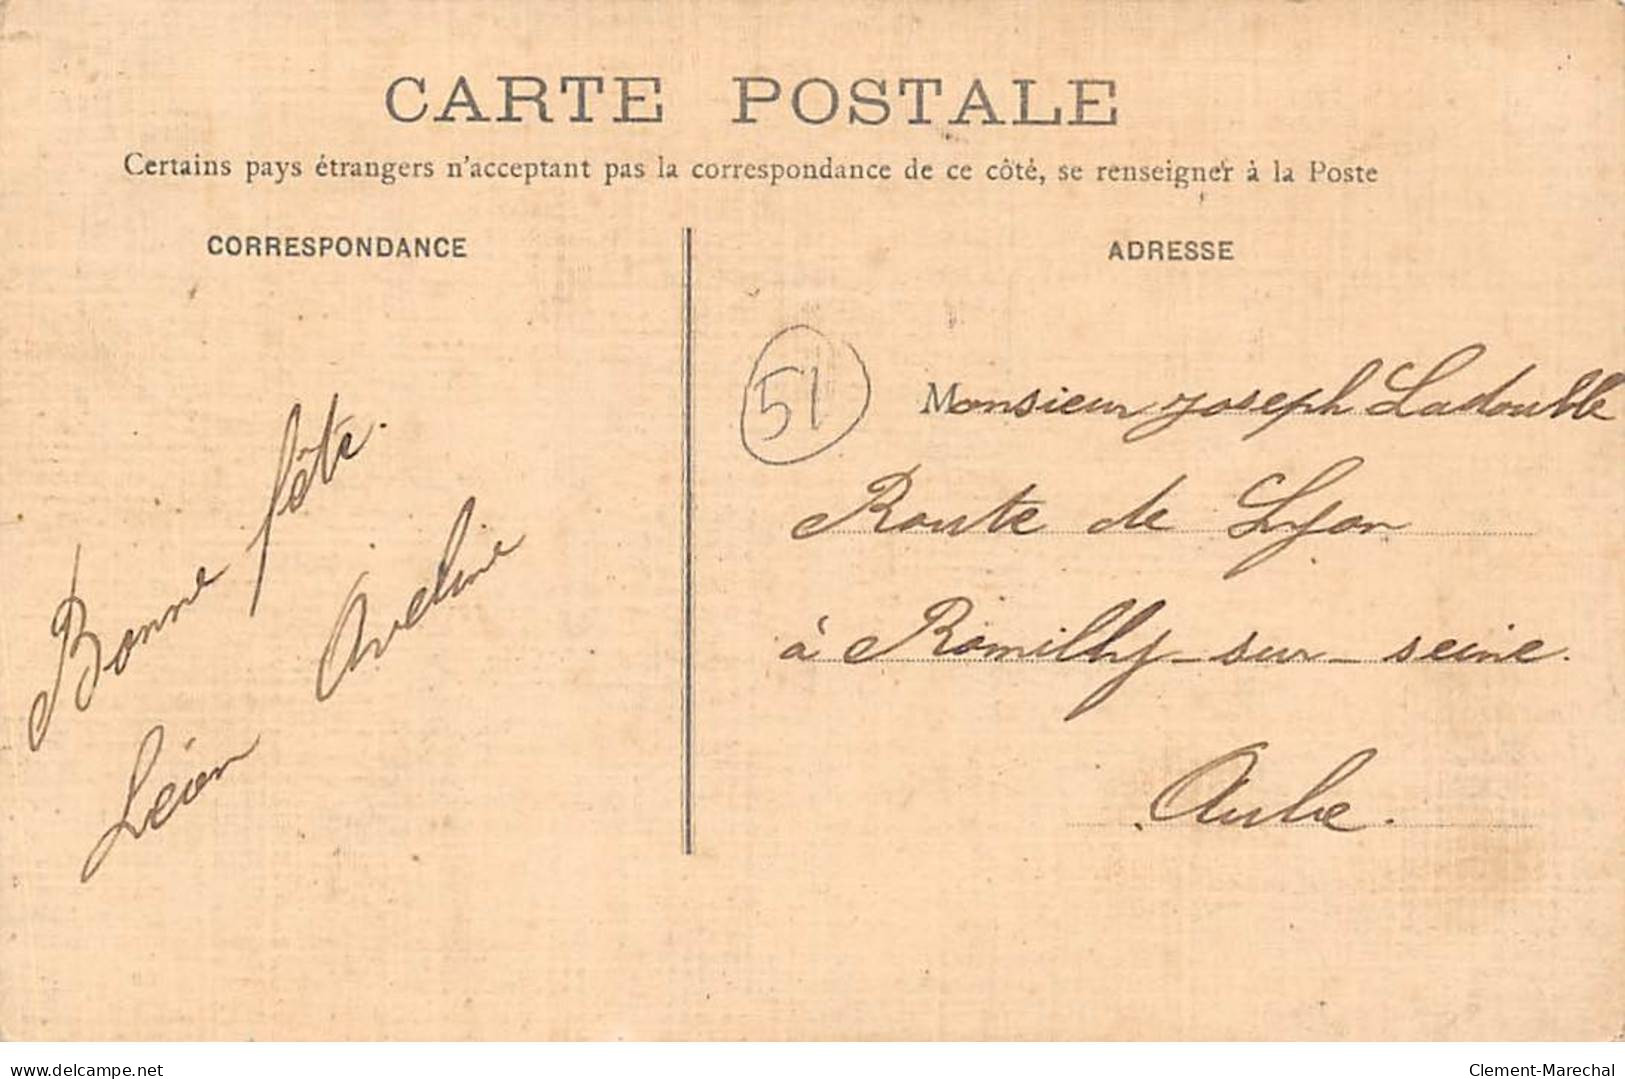 CARTE POSTALE
Certains pays étrangers n'acceptant pas la correspondance de ce côté, se renseigner à la Poste
CORRESPONDANCE
Bonne fête.
Léon Aveline
ADRESSE
51
Monsieur Joseph Ladouble
Route de Lyon
à Romilly-sur-seine.
Aube.
delcampe.net
Clement-Marechal